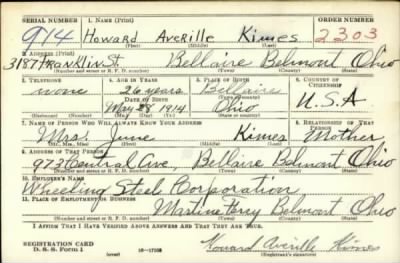 SERIAL NUMBER 1. NAME (Print) ORDER NUMBER
914 Howard Averille Kimes 2303
(First) (Middle) (Last)
2. ADDRESS (Print)
3187 Franklin St. Bellaire Belmont Ohio
(Number and street or R. F. D. number) (Town) (County) (State)
3. TELEPHONE 4. AGE IN YEARS 5. PLACE OF BIRTH 6. COUNTRY OF CITIZENSHIP
none 26 years Bellaire
DATE OF BIRTH
1914 Ohio U.S.A
7. NAME OF PERSON WHO WILL ALWAYS KNOW YOUR ADDRESS 8. RELATIONSHIP OF THAT PERSON
Mrs. June Kimes Mother
(Mr., Mrs., Miss) (First) (Middle) (Last)
9. ADDRESS OF THAT PERSON
973 Central Ave, Bellaire Belmont Ohio
(Number and street or R. F. D. number) (Town) (County) (State)
10. EMPLOYER'S NAME
Wheeling Steel Corporation
11. PLACE OF EMPLOYMENT OR BUSINESS
Martins Ferry Belmont Ohio
(Number and street or R. F. D. number) (Town) (County) (State)
I AFFIRM THAT I HAVE VERIFIED ABOVE ANSWERS AND THAT THEY ARE TRUE.
REGISTRATION CARD
D. S. S. Form 1 (over) Howard Averille Kimes
(Registrant's signature)